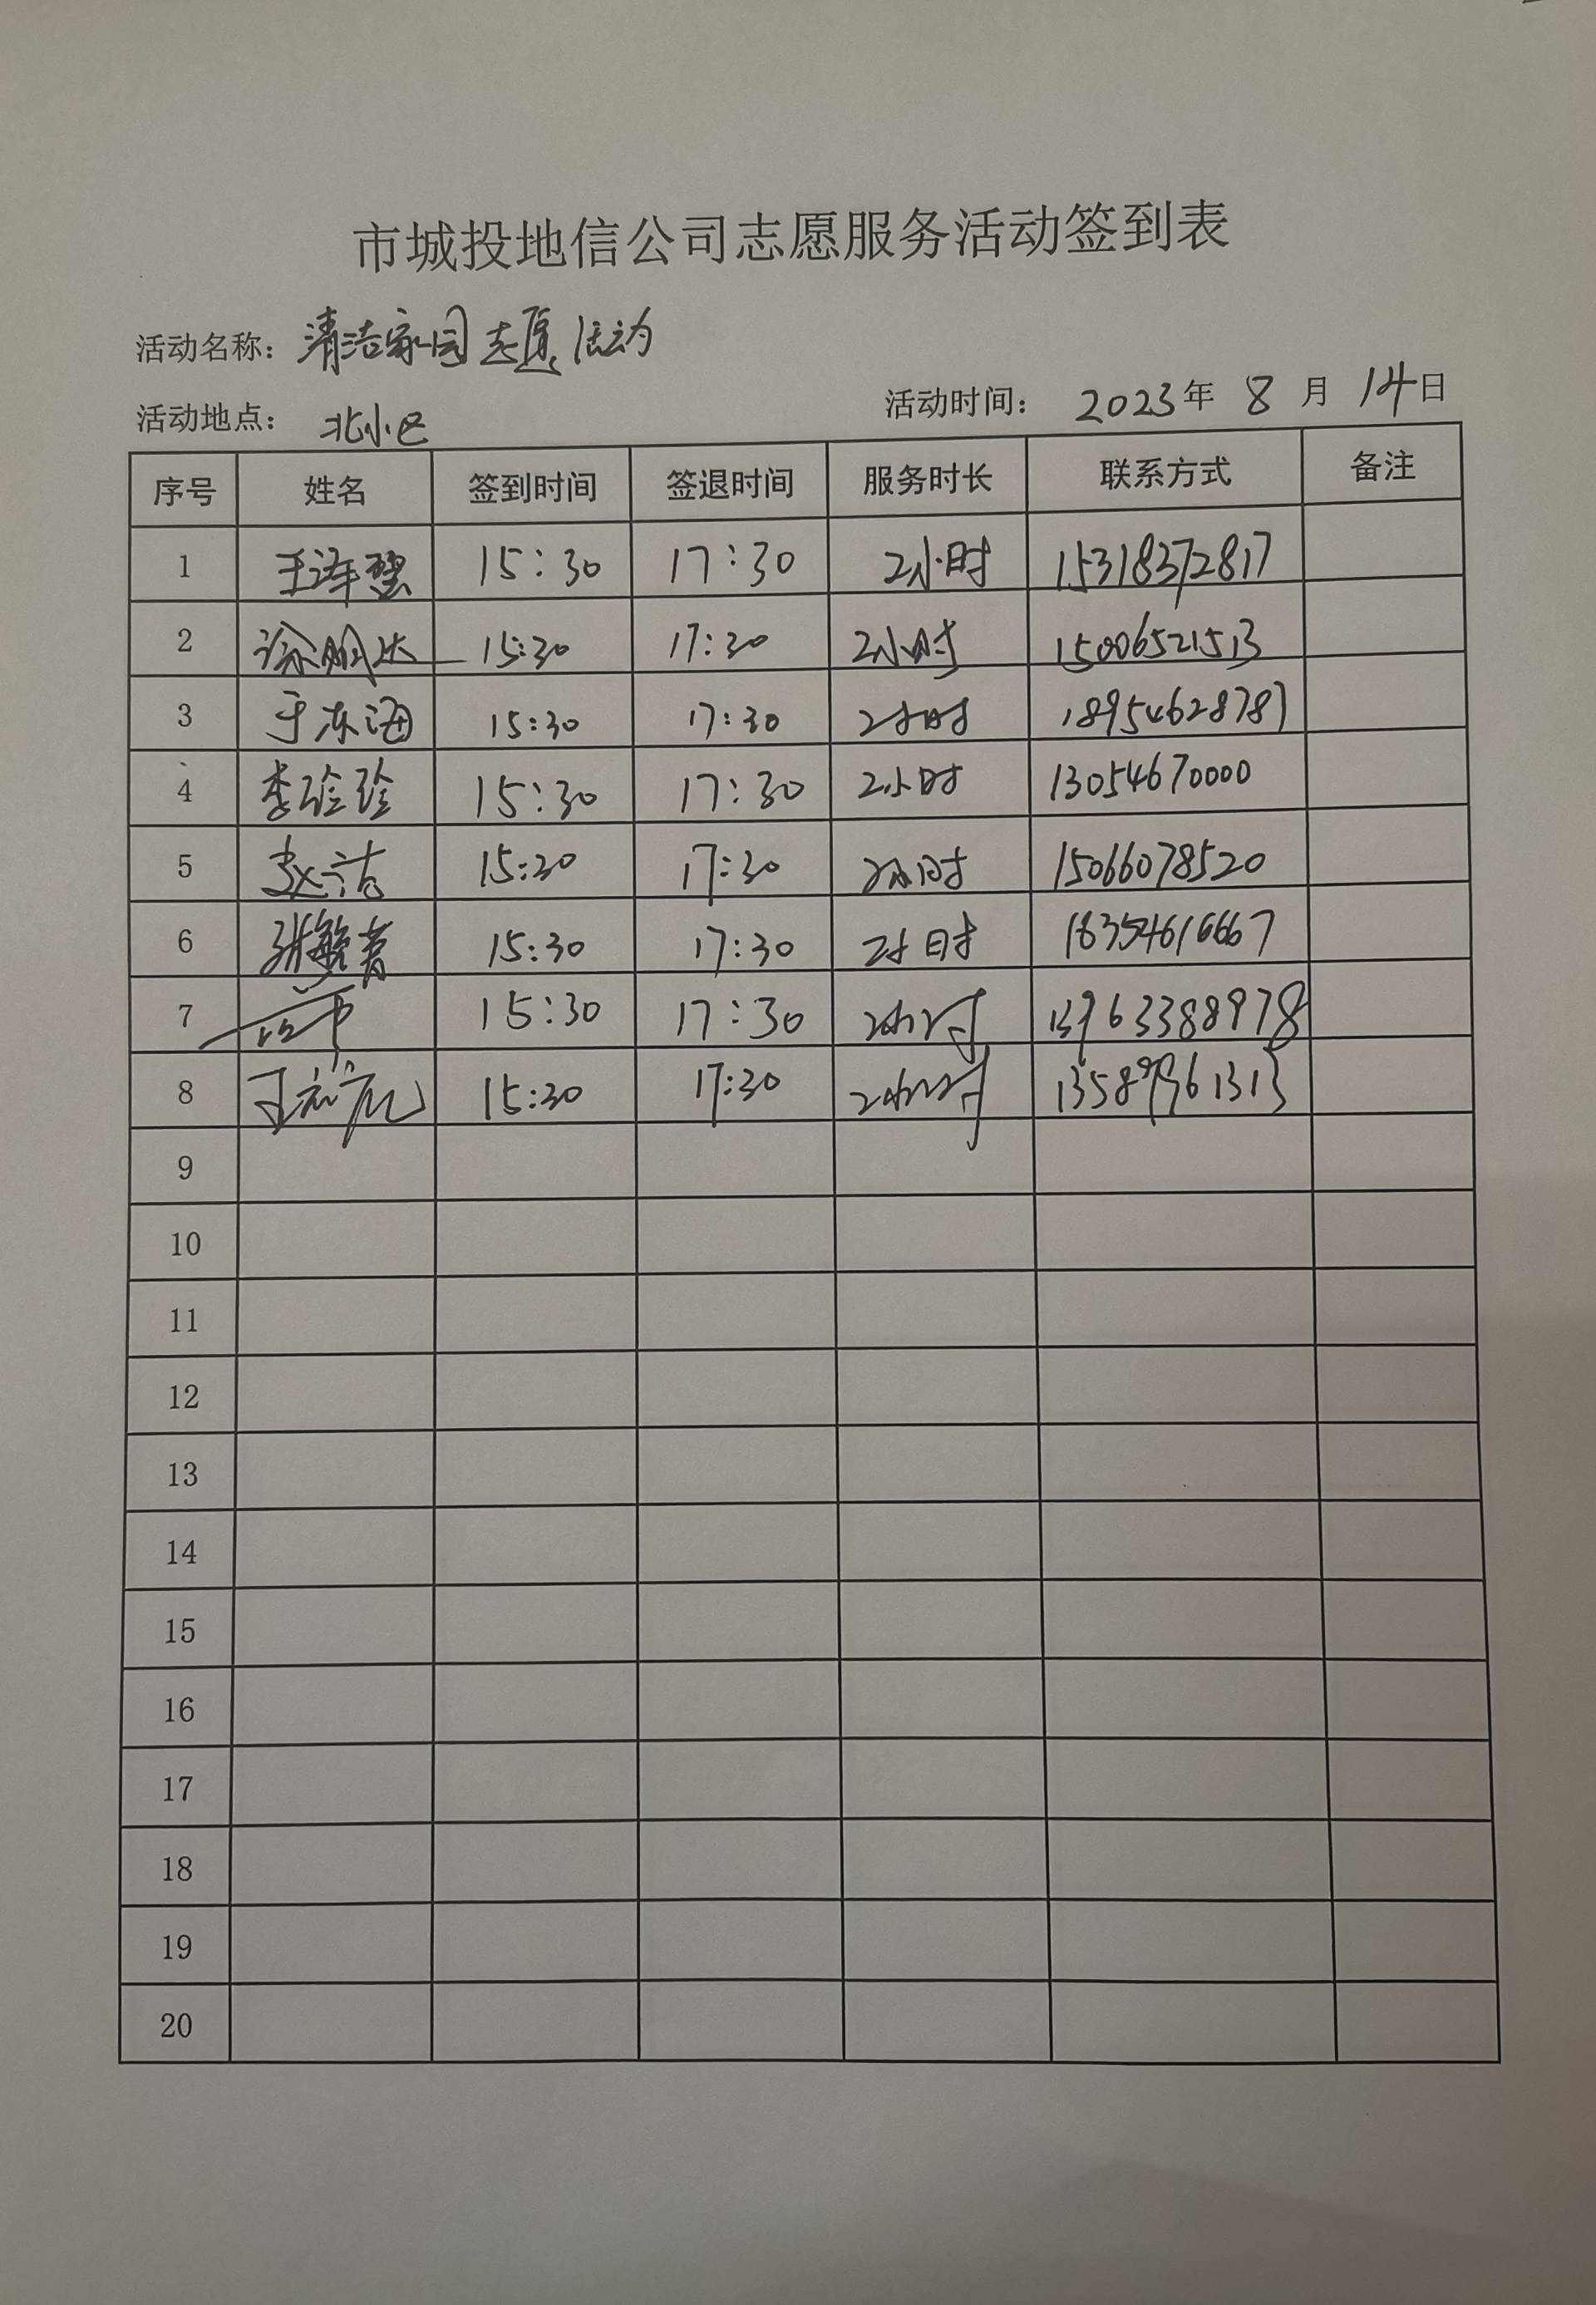 市城投地信公司志愿服务活动签到表
活动名称: 清洁家园志愿活动
活动地点: 北小区 活动时间: 2023年 8月 14日
序号 姓名 签到时间 签退时间 服务时长 联系方式 备注
1 15:30 17:30 2小时 15318372817
2 15:30 17:30 2小时 15006521513
3 于东海 15:30 17:30 2小时 18954628787
4 李珍珍 15:30 17:30 2小时 13054670000
5 赵洁 15:30 17:30 2小时 15066078520
6 张敏菁 15:30 17:30 2小时 18354616667
7 15:30 17:30 2小时 13963388978
8 15:30 17:30 2小时 13589961313
9
10
11
12
13
14
15
16
17
18
19
20